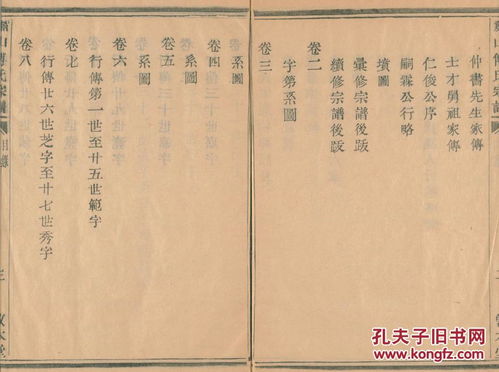 傅氏宗譜
仲書先生家傳
士才舅祖家傳
仁俊公序
嗣霖公行略
墳圖
彙修宗譜後跋
續修宗譜後跋
卷二
字第系圖
卷三
系圖
卷四
系圖
卷五
系圖
卷六
行傳第一世至廿五世範字
卷七
行傳廿六世芝字至廿七世秀字
卷八
山傅氏宗譜
目錄
三
孔夫子旧书网
www.kongfz.com